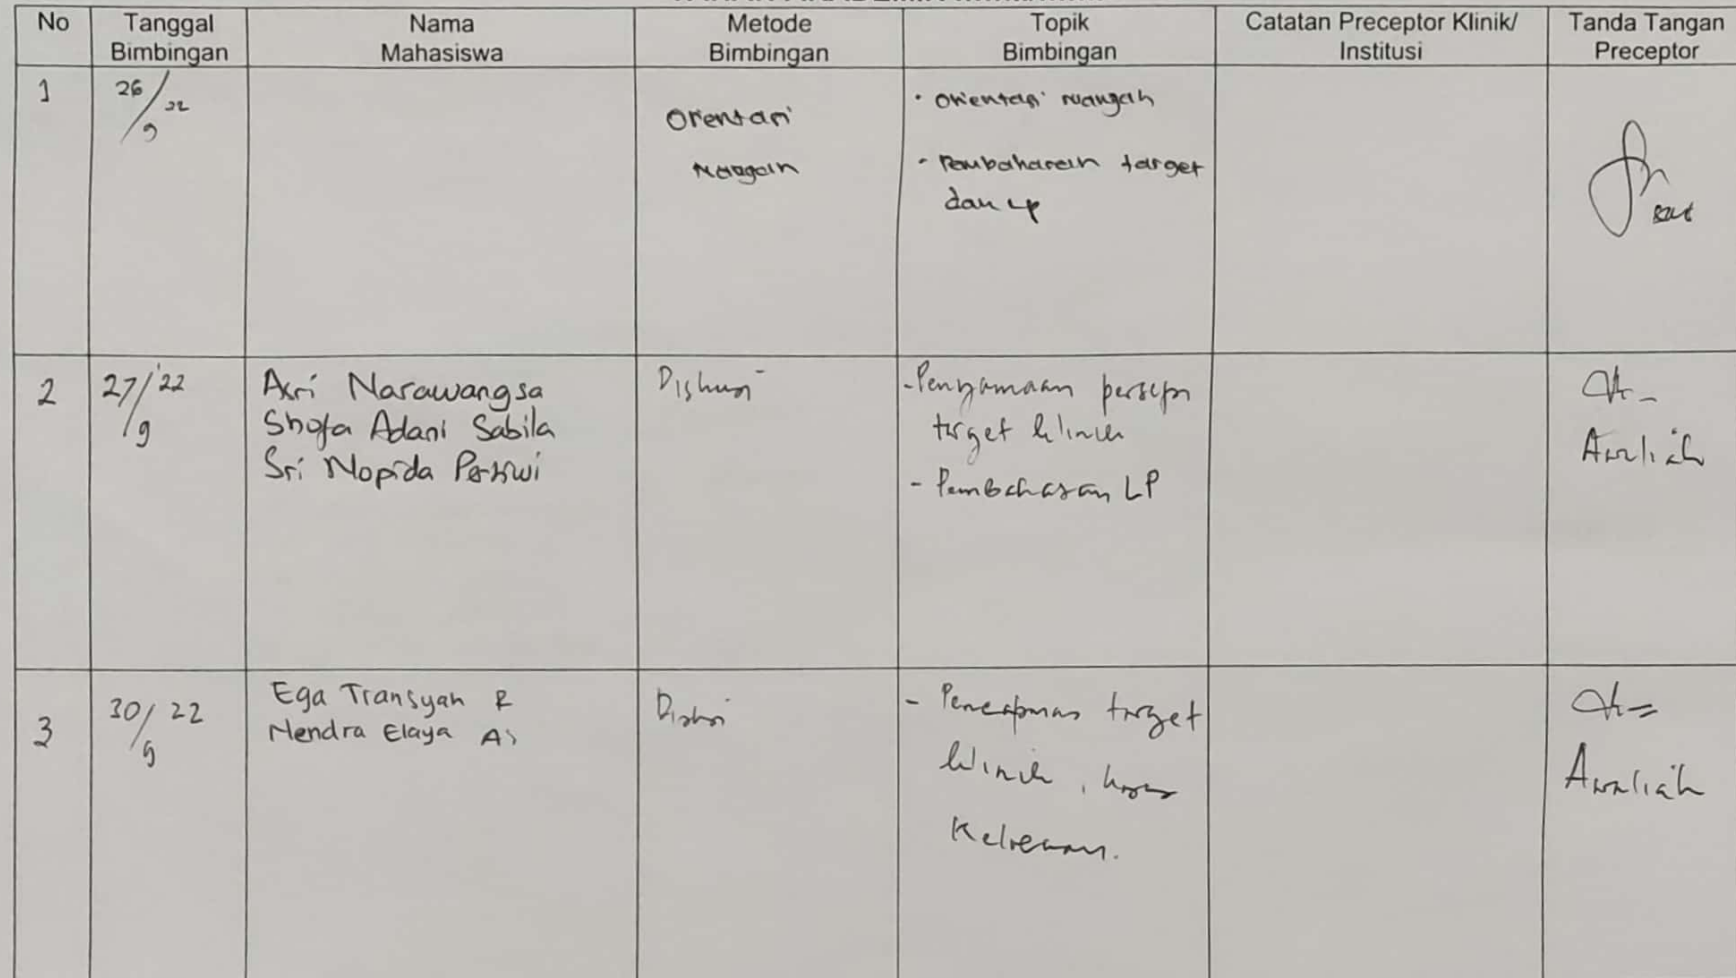 No
Tanggal
Bimbingan
Nama
Mahasiswa
Metode
Bimbingan
Topik
Bimbingan
Catatan Preceptor Klinik/
Institusi
Tanda Tangan
Preceptor
1
26/9 22
Orientasi
Ruangan
- Orientasi ruangan
- Pembahasan target
dan LP
2
27/9 '22
Asri Narawangsa
Shofa Adani Sabila
Sri Nopida Pertiwi
Diskusi
- Penyamaan persepsi
target klinik
- Pembahasan LP
Awaliah
3
30/9 22
Ega Transyah R
Nendra Elaya A
Diskusi
- Pencapaian target
klinik, kasus
Kelolaan.
Awaliah